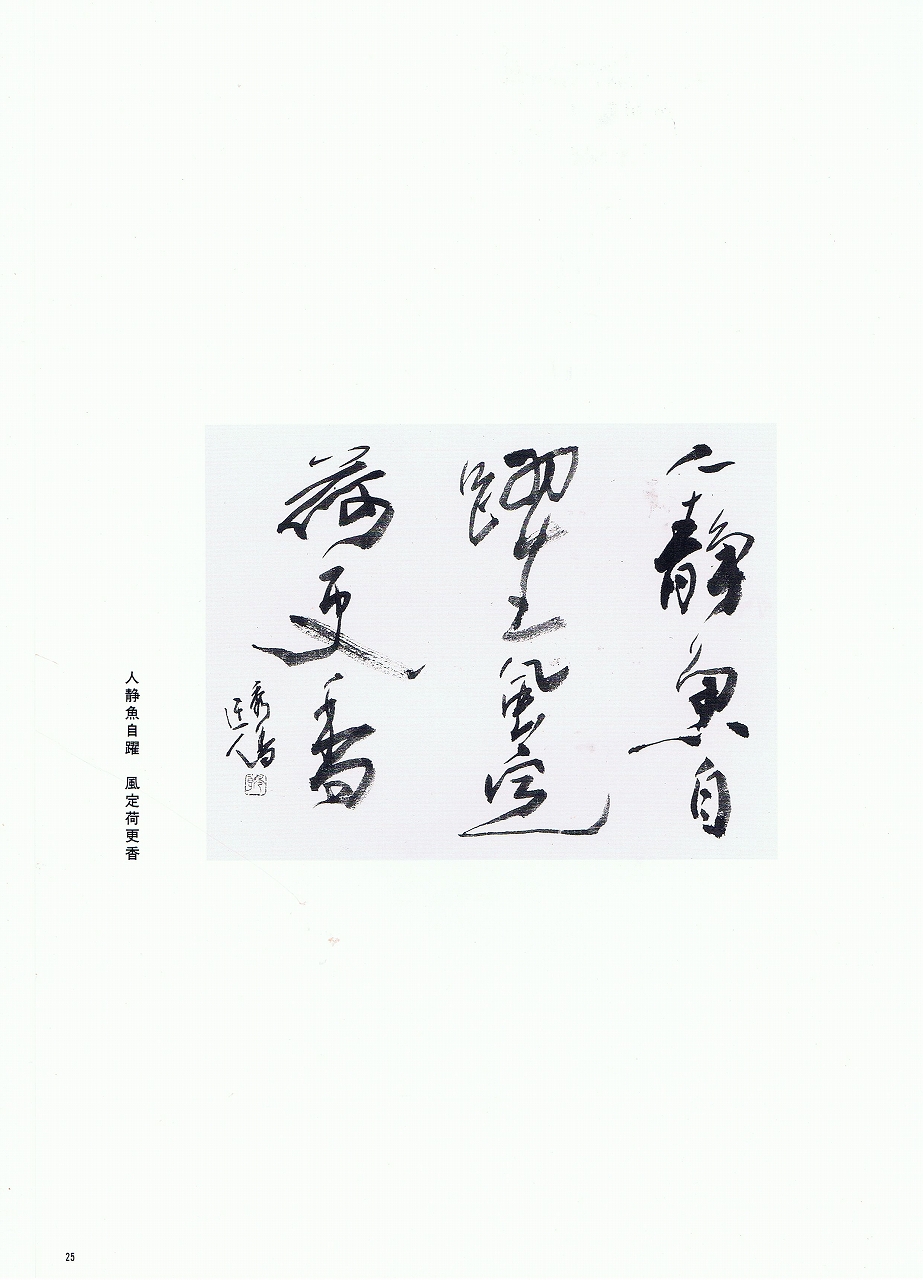 人静魚自
躍風定
荷更香
人静魚自躍　風定荷更香
25